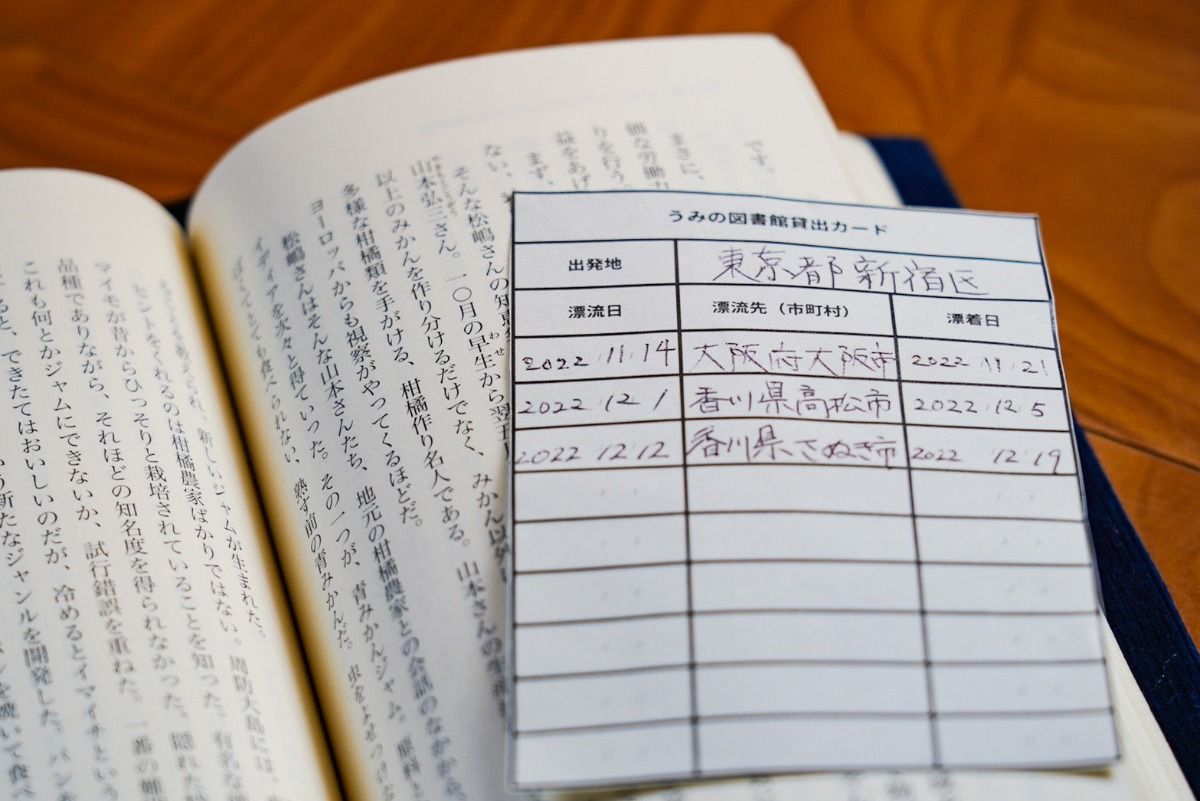 うみの図書館貸出カード
出発地 東京都新宿区
漂流日 漂流先（市町村） 漂着日
2022 11 14 大阪府大阪市 2022 11 21
2022 12 1 香川県高松市 2022 12 5
2022 12 12 香川県さぬき市 2022 12 19
です。
まさに、
価な労働力
りを行う。
益をあげ
まず、
ない、
そんな松嶋さんの知恵
山本弘三さん。一〇月の早生から翌五月
わせ
以上のみかんを作り分けるだけでなく、みかん以外
多様な柑橘類を手がける、柑橘作り名人である。山本さんの生
ヨーロッパからも視察がやってくるほどだ。
松嶋さんはそんな山本さんたち、地元の柑橘農家との会話のなかから、
イディアを次々と得ていった。その一つが、青みかんジャム。原料
ぱくてとても食べられない、熟す前の青みかんだ。車をよせつけ
新しいジャムが生まれた。
ヒントをくれるのは柑橘農家ばかりではない。周防大島には、
マイモが昔からひっそりと栽培されていることを知った。有名な
品種でありながら、それほどの知名度を得られなかった。隠れた
これも何とかジャムにできないか、試行錯誤を重ねた。一番の難
すると、できたてはおいしいのだが、冷めるとイマイチという
新たなジャンルを開発した。パン
パンを焼いて食べ